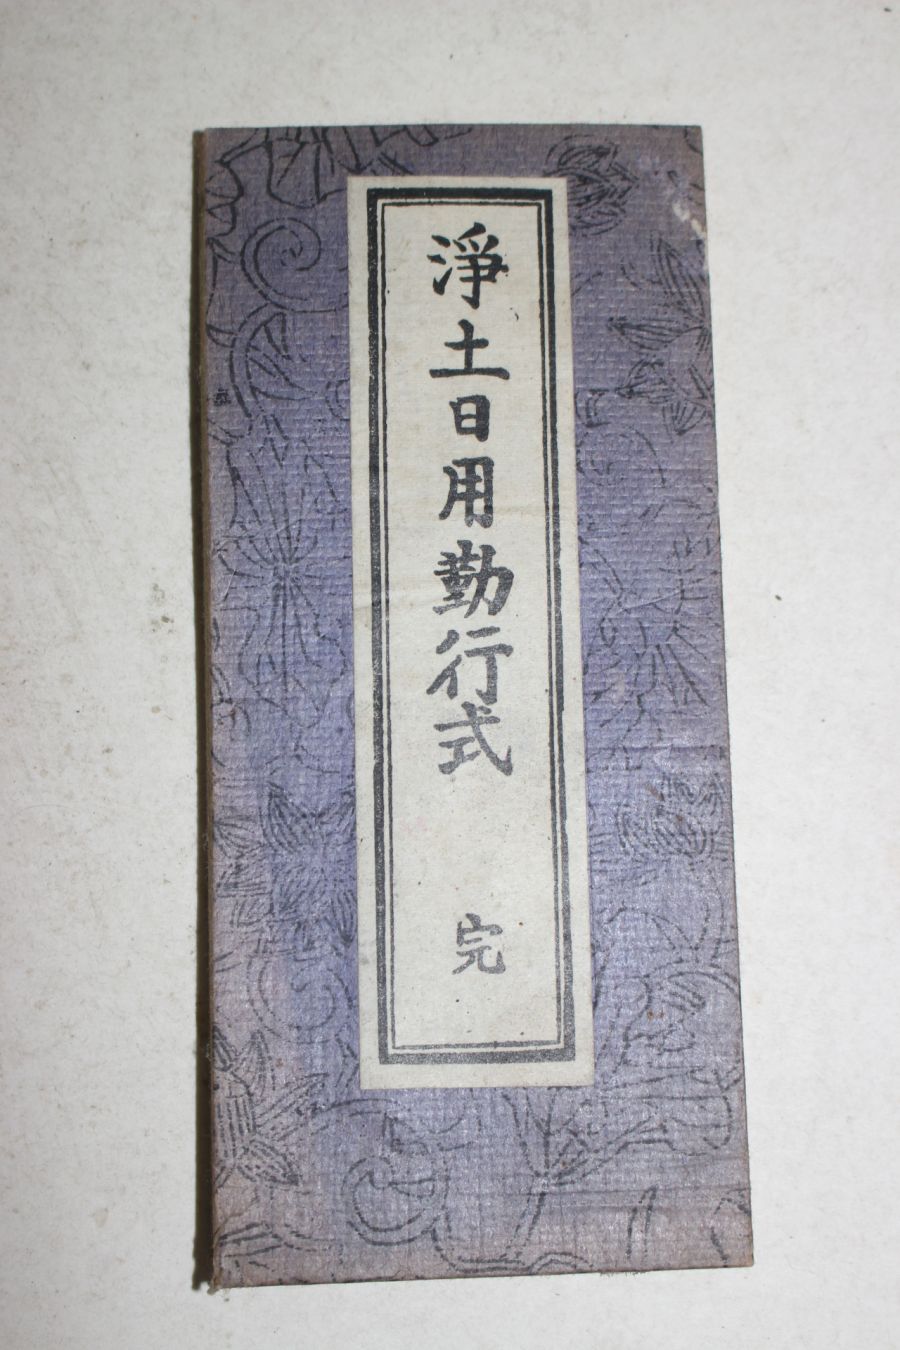 淨土日用勤行式 完